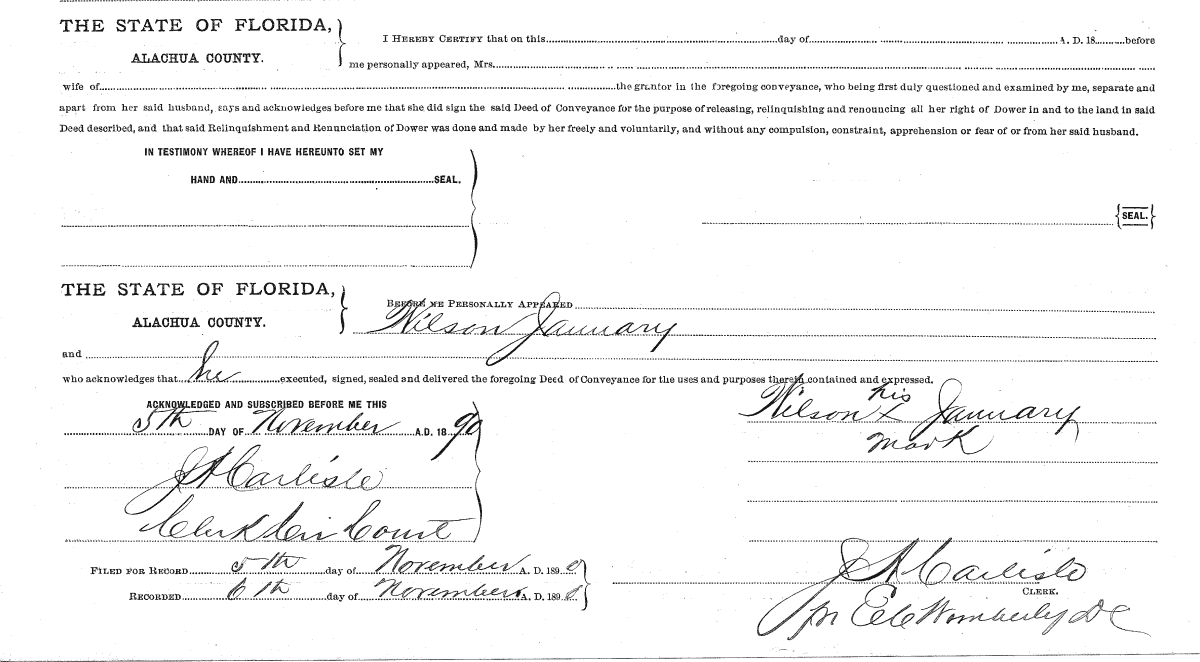 THE STATE OF FLORIDA,
ALACHUA COUNTY.
I HEREBY CERTIFY that on this day of A. D. 18 before
me personally appeared, Mrs.
wife of the grantor in the foregoing conveyance, who being first duly questioned and examined by me, separate and
apart from her said husband, says and acknowledges before me that she did sign the said Deed of Conveyance for the purpose of releasing, relinquishing and renouncing all her right of Dower in and to the land in said
Deed described, and that said Relinquishment and Renunciation of Dower was done and made by her freely and voluntarily, and without any compulsion, constraint, apprehension or fear of or from her said husband.
IN TESTIMONY WHEREOF I HAVE HEREUNTO SET MY
HAND AND SEAL.
SEAL.
THE STATE OF FLORIDA,
ALACHUA COUNTY.
BEFORE ME PERSONALLY APPEARED
Wilson January
and
who acknowledges that he executed, signed, sealed and delivered the foregoing Deed of Conveyance for the uses and purposes therein contained and expressed.
ACKNOWLEDGED AND SUBSCRIBED BEFORE ME THIS
5th DAY OF November A.D. 18 90
J A Carlisle
Clerk Cir Court
his
Wilson X January
mark
FILED FOR RECORD 5th day of November A. D. 189 0
RECORDED 6th day of November A. D. 189 0
J A Carlisle
CLERK.
pr E C Wimberly DC